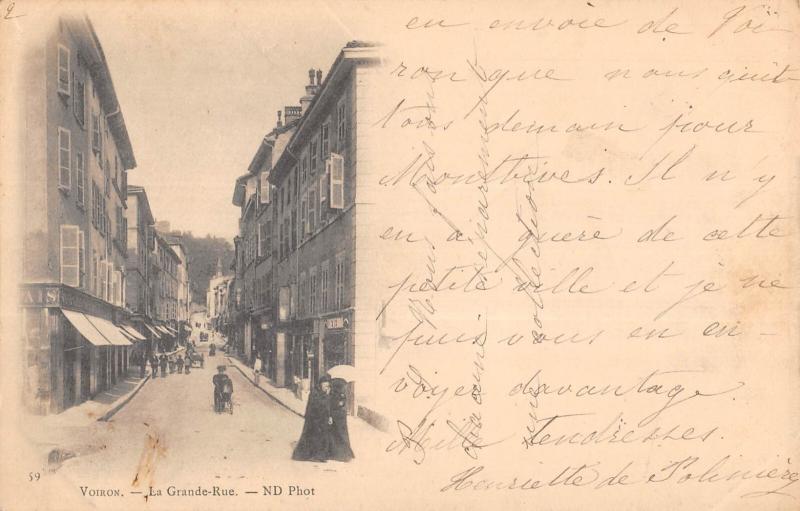 en envoie de Voi
ron que nous quit
tons demain pour
Montrives. Il n'y
en a guère de cette
petite ville et je ne
puis vous en en-
voyer davantage.
Mille tendresses.
Henriette de Polinière
Nous faisons
chacune séparément
une collection
59
VOIRON. — La Grande-Rue. — ND Phot
AIS